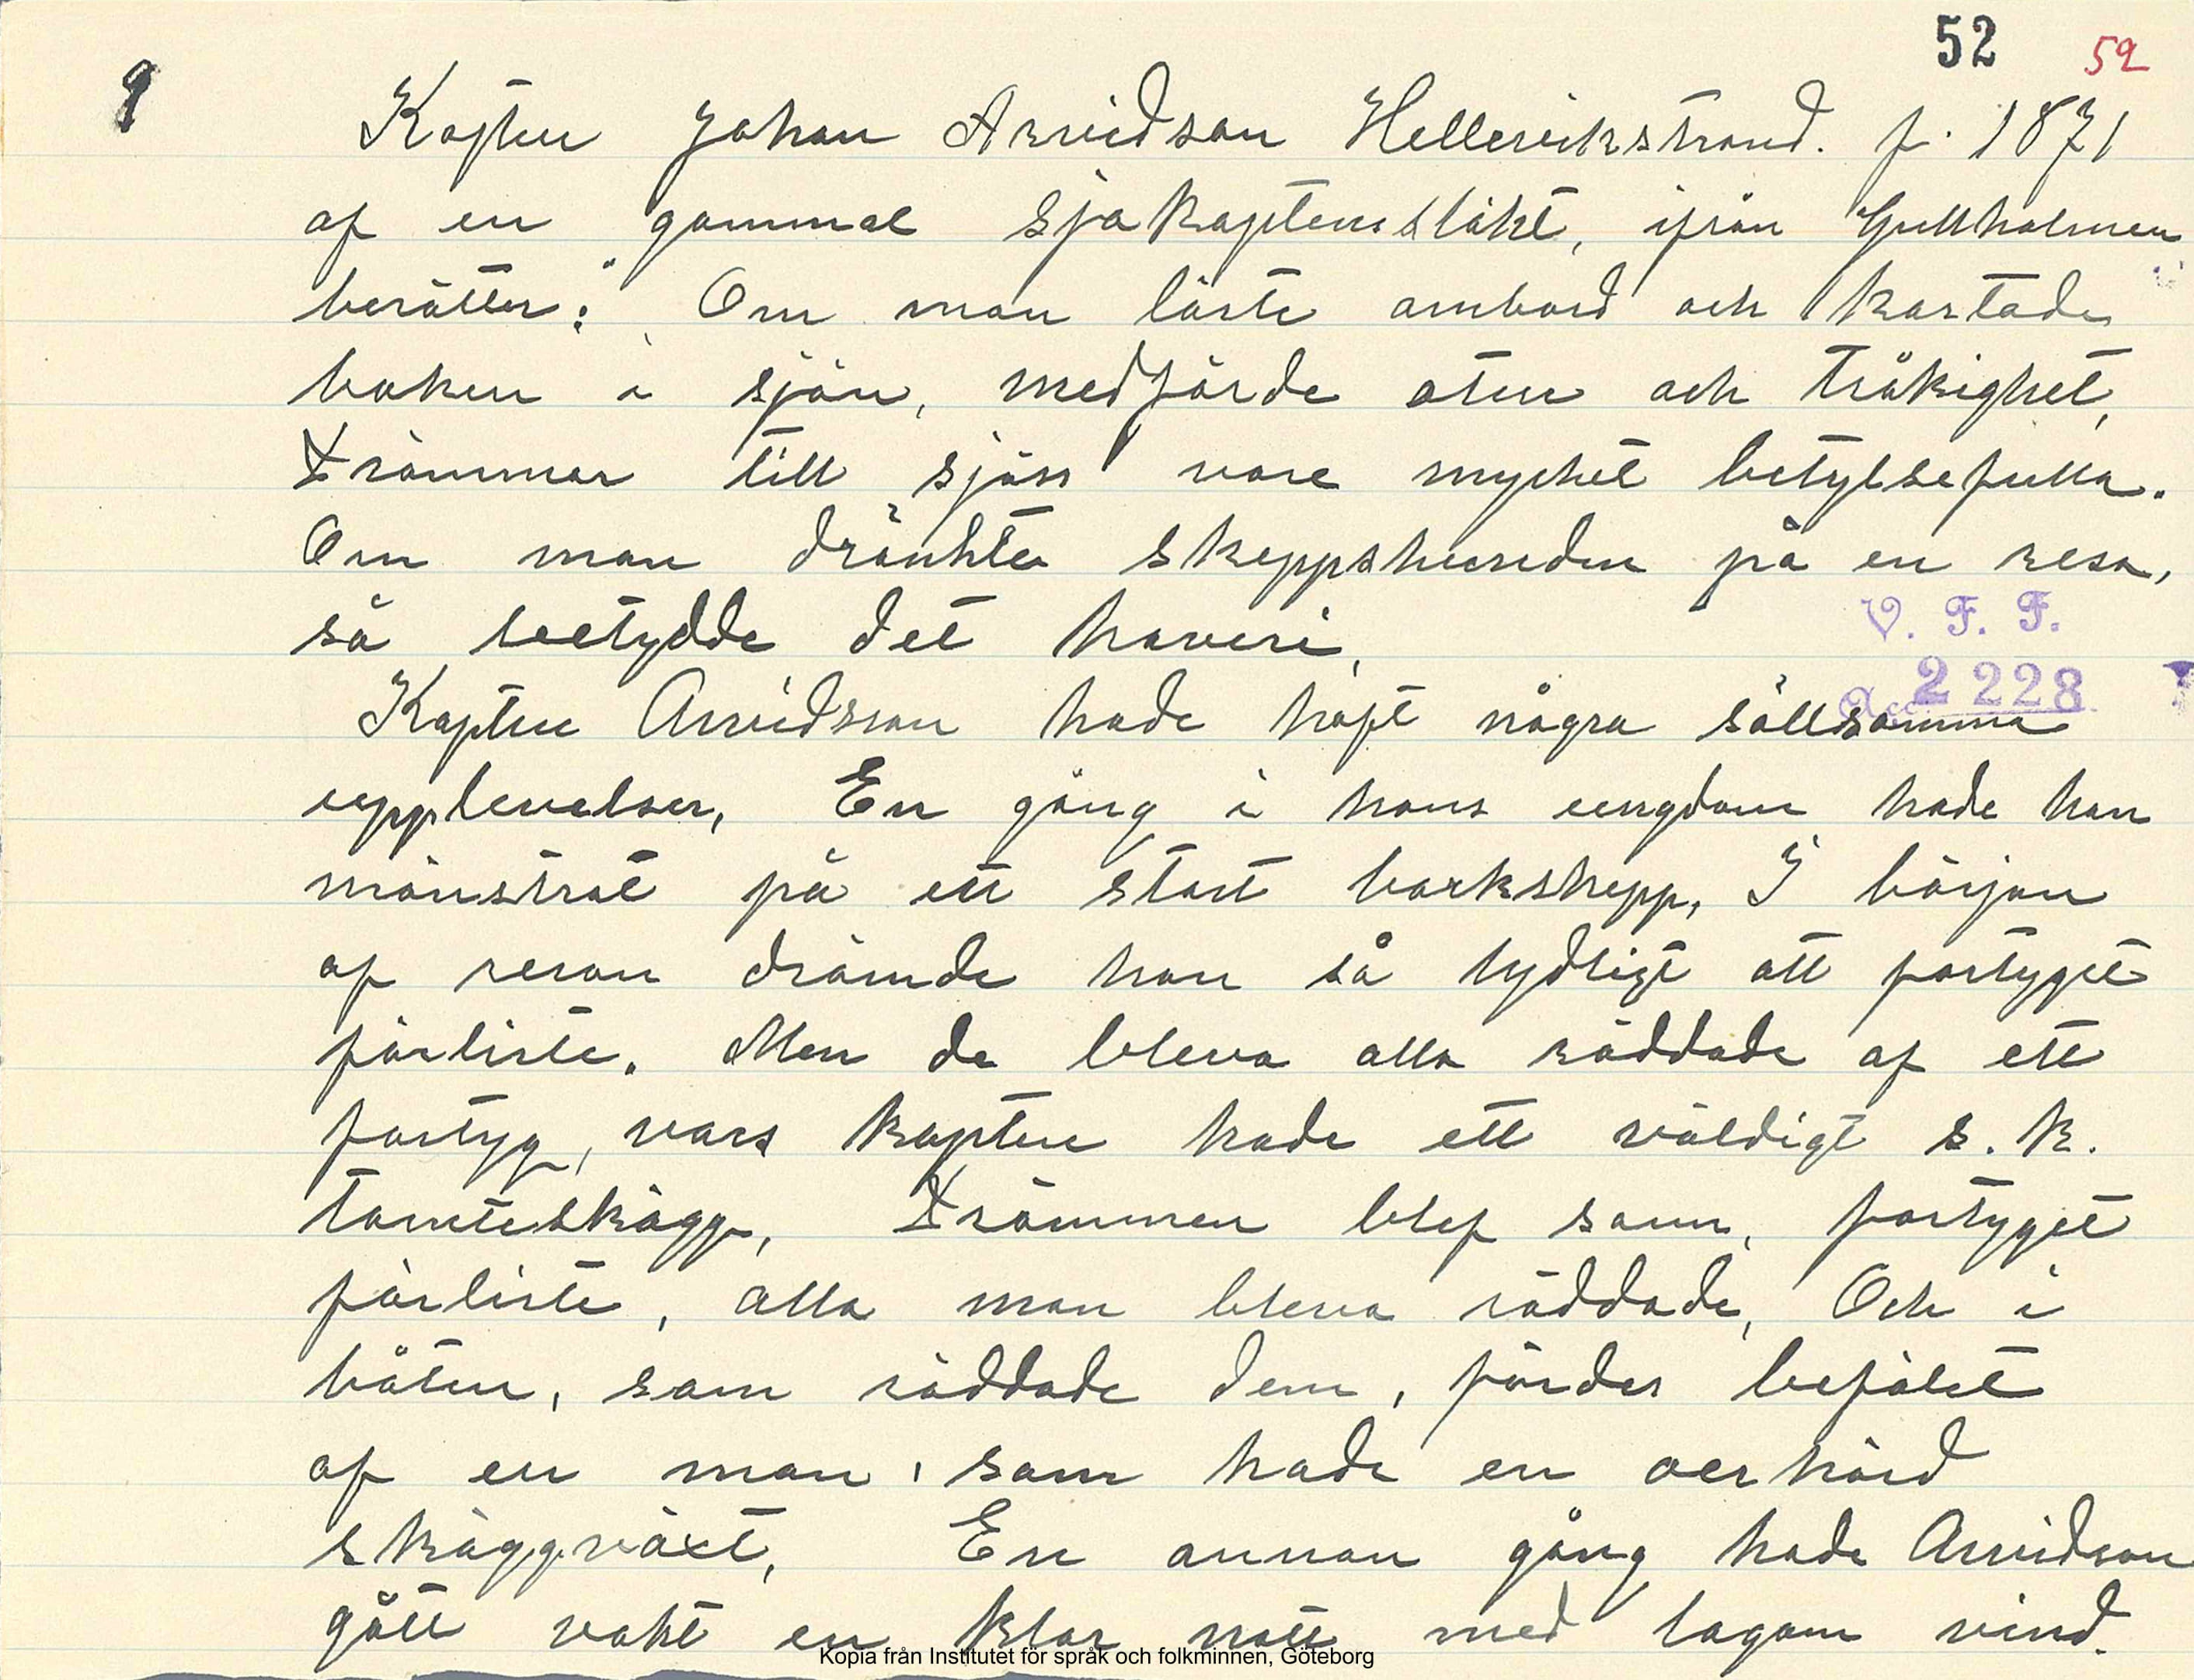 52 52
9
Kapten Johan Arvidson Hellevikstrand. f. 1871
af en gammal sjökaptenssläkt, ifrån Gullholmen
berätter: "Om man läste ombord och kastade
boken i sjön, medförde otur och tråkighet,
Drömmar till sjöss vore mycket betylsefulla.
Om man dränkte skeppshunden på en resa,
så betydde det haveri,
V. F. F.
Acc 2228
Kapten Arvidsson hade haft några sällsamma
upplevelser, En gång i hans ungdom hade han
mönstrat på ett stort barkskepp, I början
af resan drömde han så tydligt att fartyget
förliste. Men de bleva alla räddade af ett
fartyg, vars kapten hade ett väldigt s.k.
tomteskägg, Drömmen blef sann, fartyget
förliste, alla man bleva räddade, Och i
båten, som räddade dem, fördes befälet
af en man, som hade en oerhörd
skäggväxt, En annan gång hade Arvidson
gått vakt en klar natt med lagom vind.
Kopia från Institutet för språk och folkminnen, Göteborg